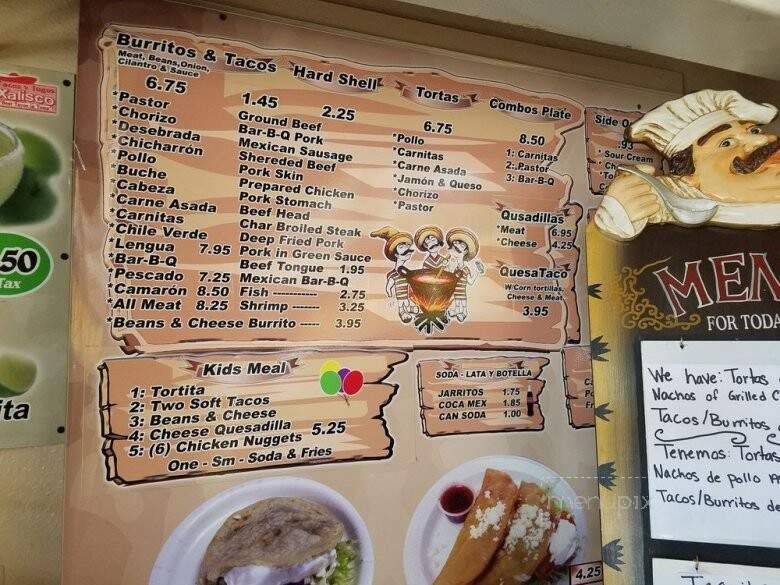 Xalisco
Burritos & Tacos
Meat, Beans, Onion,
Cilantro & Sauce
6.75
*Pastor
*Chorizo
*Desebrada
*Chicharrón
*Pollo
*Buche
*Cabeza
*Carne Asada
*Carnitas
*Chile Verde
*Lengua 7.95
*Bar-B-Q
*Pescado 7.25
*Camarón 8.50
*All Meat 8.25
*Beans & Cheese Burrito ----- 3.95
Hard Shell
1.45 2.25
Ground Beef
Bar-B-Q Pork
Mexican Sausage
Shereded Beef
Pork Skin
Prepared Chicken
Pork Stomach
Beef Head
Char Broiled Steak
Deep Fried Pork
Pork in Green Sauce
Beef Tongue 1.95
Mexican Bar-B-Q
Fish ------------ 2.75
Shrimp ------- 3.25
Tortas
6.75
*Pollo
*Carnitas
*Carne Asada
*Jamón & Queso
*Chorizo
*Pastor
Combos Plate
8.50
1: Carnitas
2: Pastor
3: Bar-B-Q
Qusadillas
*Meat 6.95
*Cheese 4.25
QuesaTaco
W/Corn tortillas,
Cheese & Meat
3.95
Side O
.95
* Sour Cream
Kids Meal
1: Tortita
2: Two Soft Tacos
3: Beans & Cheese
4: Cheese Quesadilla
5: (6) Chicken Nuggets 5.25
One - Sm - Soda & Fries
SODA - LATA Y BOTELLA
JARRITOS 1.75
COCA MEX 1.85
CAN SODA 1.00
4.25
.50
Tax
ita
MEN
FOR TODA
We have: Tortas
Nachos of Grilled C
Tacos/Burritos
Tenemos: Tortas
Nachos de pollo
Tacos/Burritos de
menupix